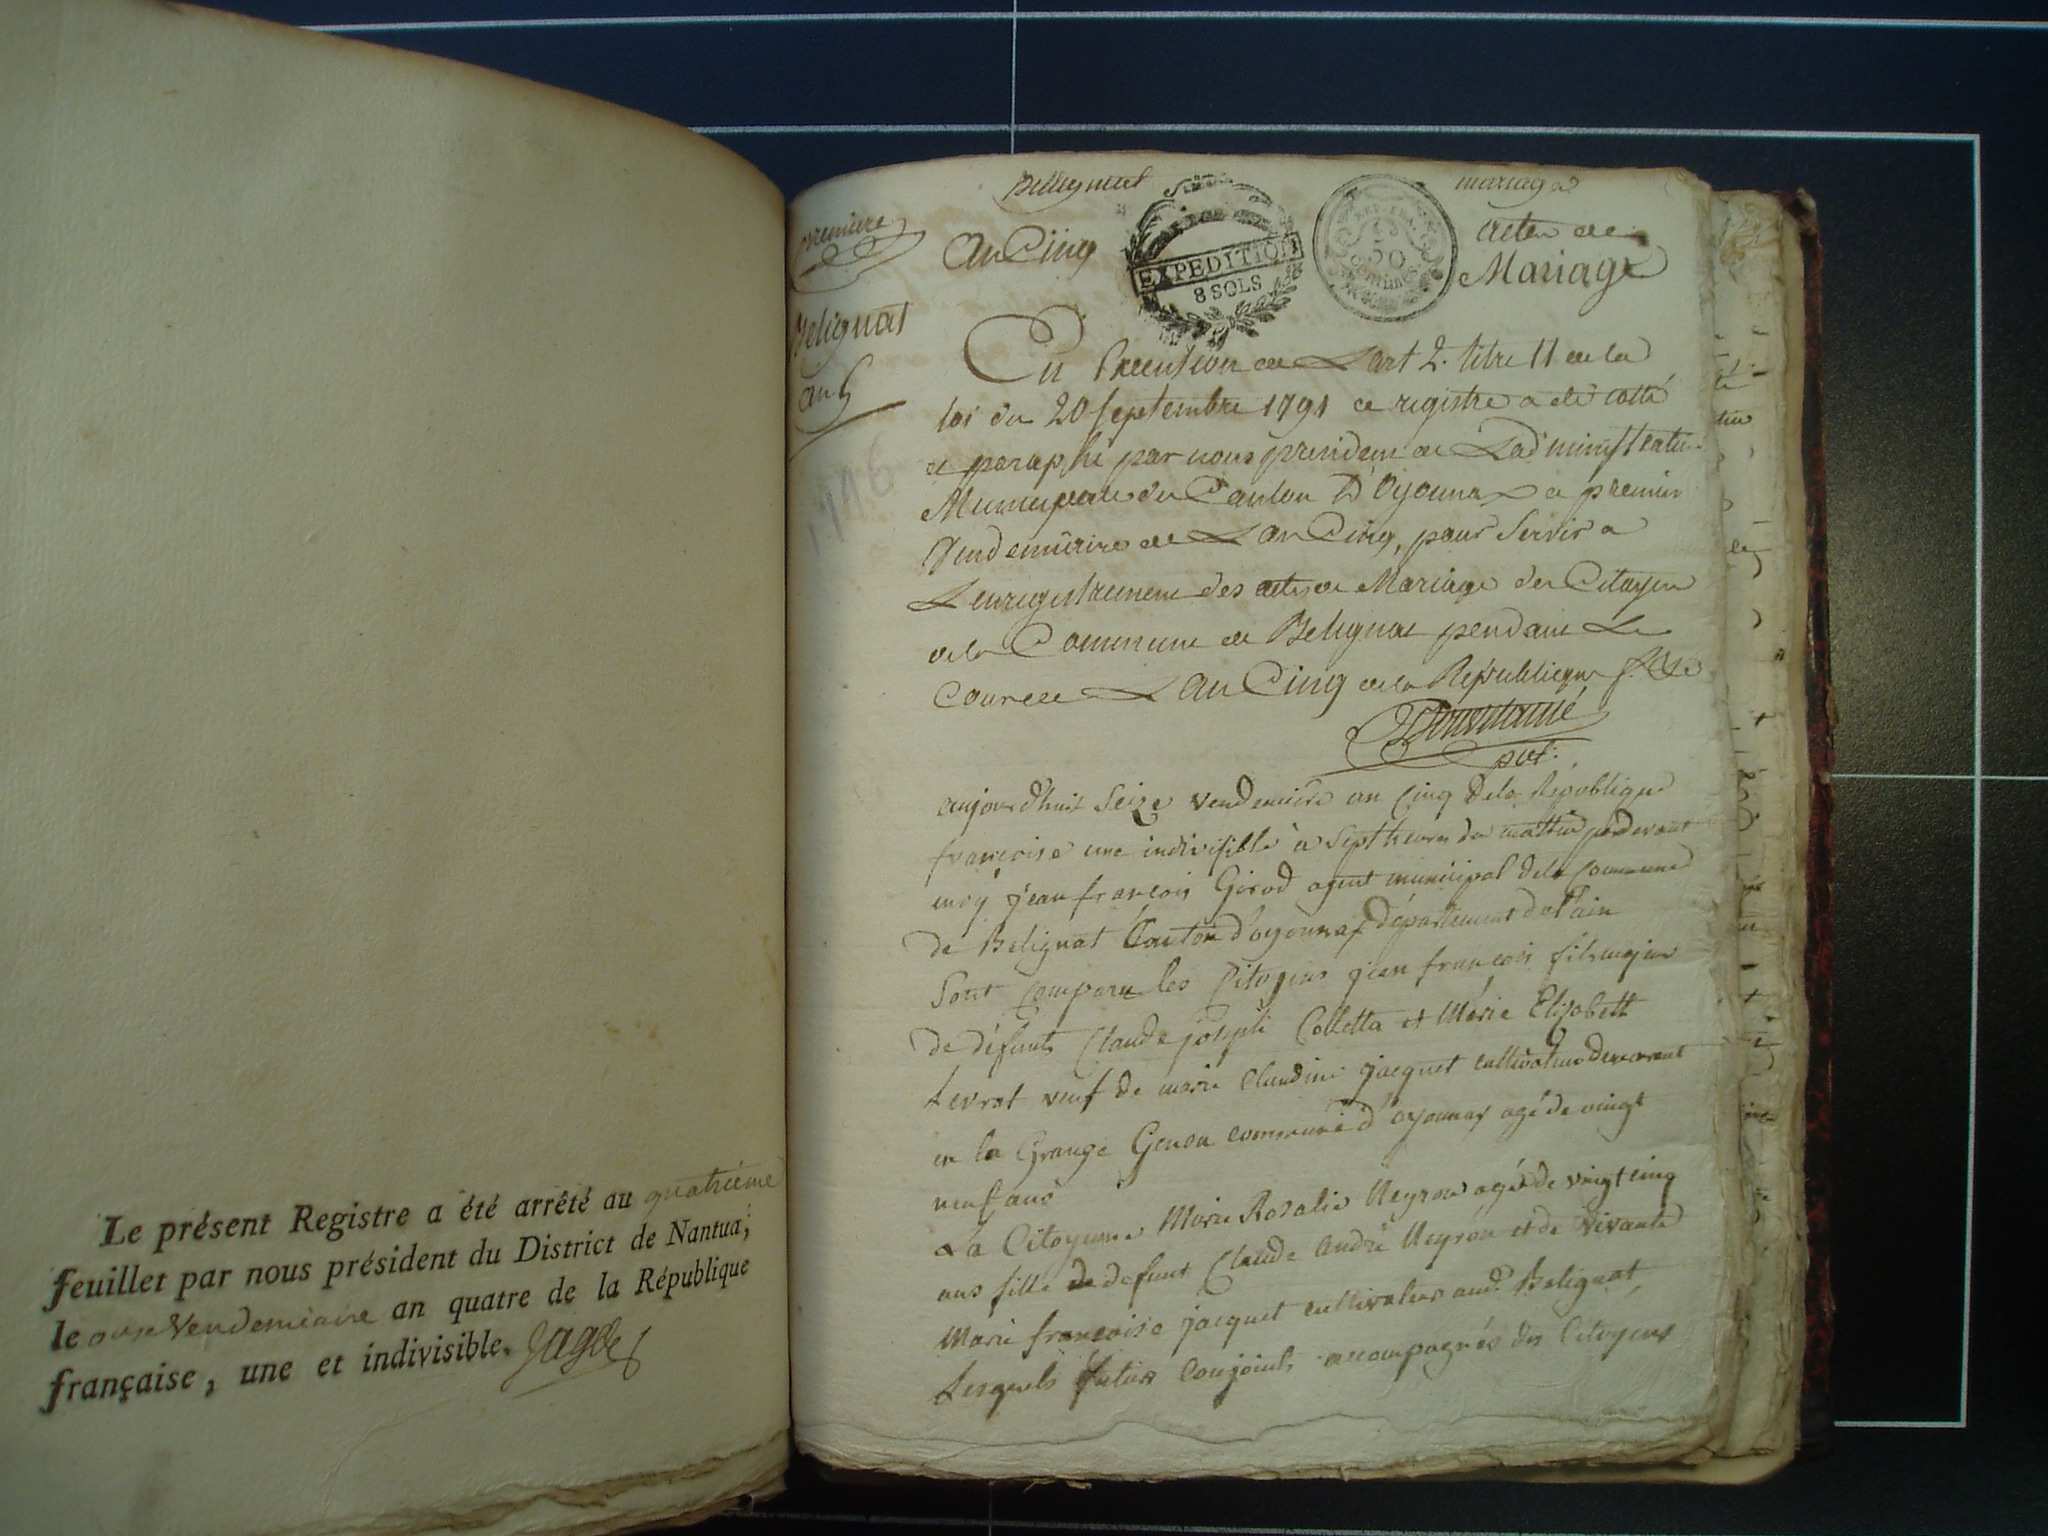 Le présent Registre a été arrêté au quatrième
feuillet par nous président du District de Nantua,
le onze Vendemiaire an quatre de la République
française, une et indivisible.
première
Belignat
an 5
1796
Bellignat
mariage
an Cinq
EXPEDITION
8 SOLS
REP. FRA.
50
centimes
actes de
Mariage
En Execution de Lart 2. titre 11 de la
loi du 20 septembre 1791 ce registre a été cotté
et paraphé par nous president de Ladministration
Municipale du Canton D'Oyonnax Le premier
Vendemiaire de L an Cinq, pour servir a
Lenregistrement des actes de Mariage des Citoyens
de la Commune de Belignat pendant Le
Cours de L an Cinq de la Republique f.se
aujourdhuit seize vendemiere an cinq dela Republique
francoise une indivisible à sept heures du mattin pardevant
moÿ jean francois Girod agent municipal dela Commune
de Belignat Canton d'oyonnax département delain
sont comparu les Citoyens jean francois fils majeur
de défunts Claude joseph Colletta et Marie Elisabett
Levrat veuf de marie Claudine jacquet cultivateur demeurant
en la Grange commune d'oyonnax agé de vingt
neuf ans
La Citoyenne Marie Rosalie Neyron agée de vingt cinq
ans fille de defunt Claude andré Neyron et de vivante
Marie francoise jacquet cultivateur aud. Belignat,
Lesquels futurs Conjoints accompagnés des Citoyens